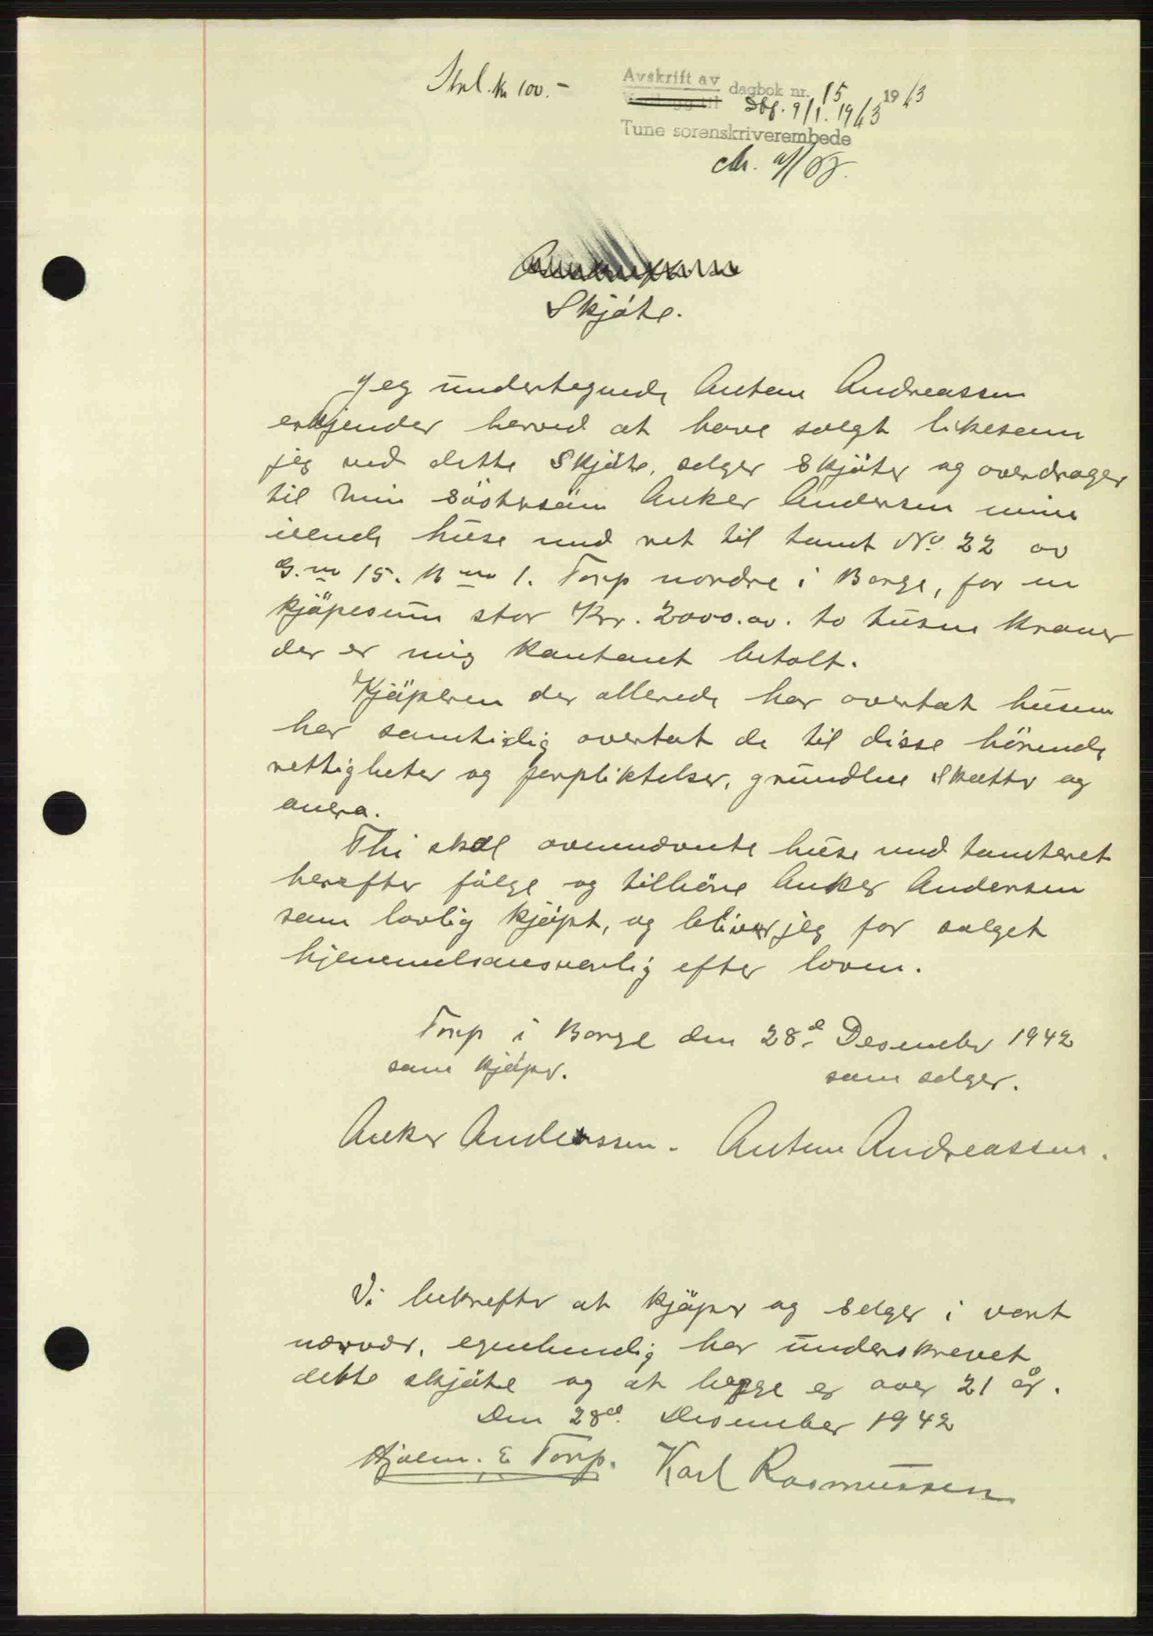 Stpl. kr 100.-
Avskrift av dagbok nr. 15 1943
Dbf. 9/1. 1943
Tune sorenskriverembede
Skjöte.
Jeg undertegnede Anton Andreassen
erkjender herved at have solgt likesom
jeg ved dette Skjöte, selger Skjöter og overdrager
til min Söstersön Anker Andersen mine
eiende huse med ret til tomt No. 22 av
G. no 15. B no 1. Torp nordre i Borge, for en
kjöpesum stor Kr. 2000.00. to tusen kroner
der er mig kontant betalt.
Kjöperen der allerede har overtat husene
har samtidig overtat de til disse hörende
rettigheter og forpliktelser, grundleie Skatter og
anera.
Thi skal ovennævnte huse med tomteret
herefter fölge og tilhöre Anker Andersen
som lovlig kjöpt, og bliver jeg for salget
hjemmelsansvarlig efter loven.
Torp i Borge den 28d Desember 1942
som kjöper. som selger.
Anker Anderssen. Anton Andreassen.
Vi bekrefter at kjöper og Selger i vort
nærvær, egenhendig har underskrevet
dette skjöte og at begge er over 21 år.
Den 28d. Desember 1942
Hjalm. E Torp. Karl Rasmussen